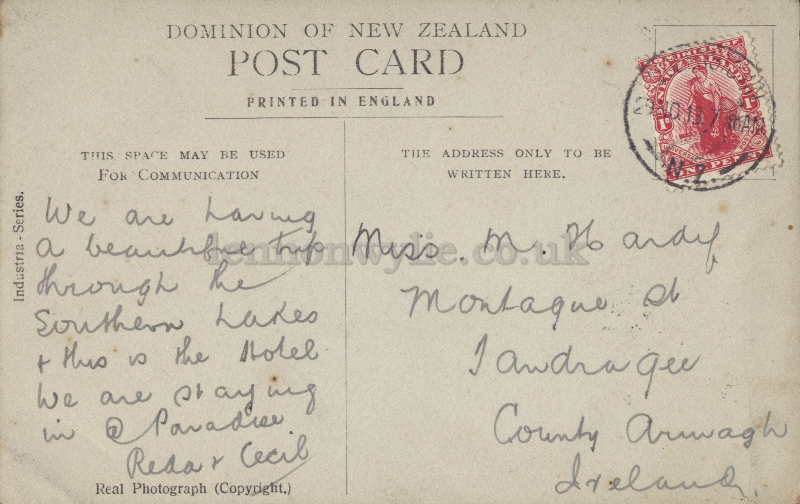 DOMINION OF NEW ZEALAND
POST CARD
PRINTED IN ENGLAND
THIS SPACE MAY BE USED
FOR COMMUNICATION
THE ADDRESS ONLY TO BE
WRITTEN HERE.
Industria - Series.
We are having
a beautiful trip
through the
Southern Lakes
+ this is the Hotel
we are staying
in @ Paradise
Reda + Cecil
Miss. M. Hardy
Montague St
Tandragee
County Armagh
Ireland.
Real Photograph (Copyright.)
lennonwylie.co.uk
NEW ZEALAND
ONE PENNY
N.Z.